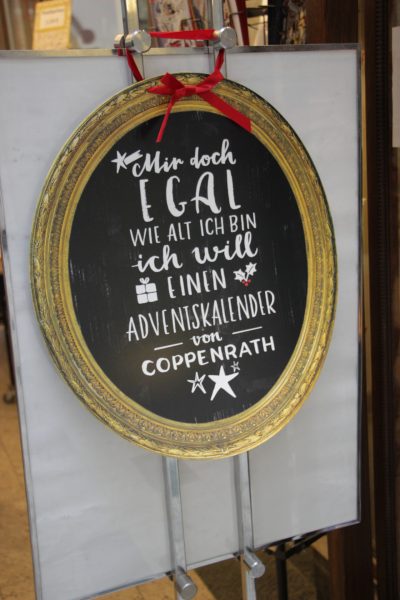 Mir doch
EGAL
WIE ALT ICH BIN
ich will
EINEN
ADVENTSKALENDER
von
COPPENRATH